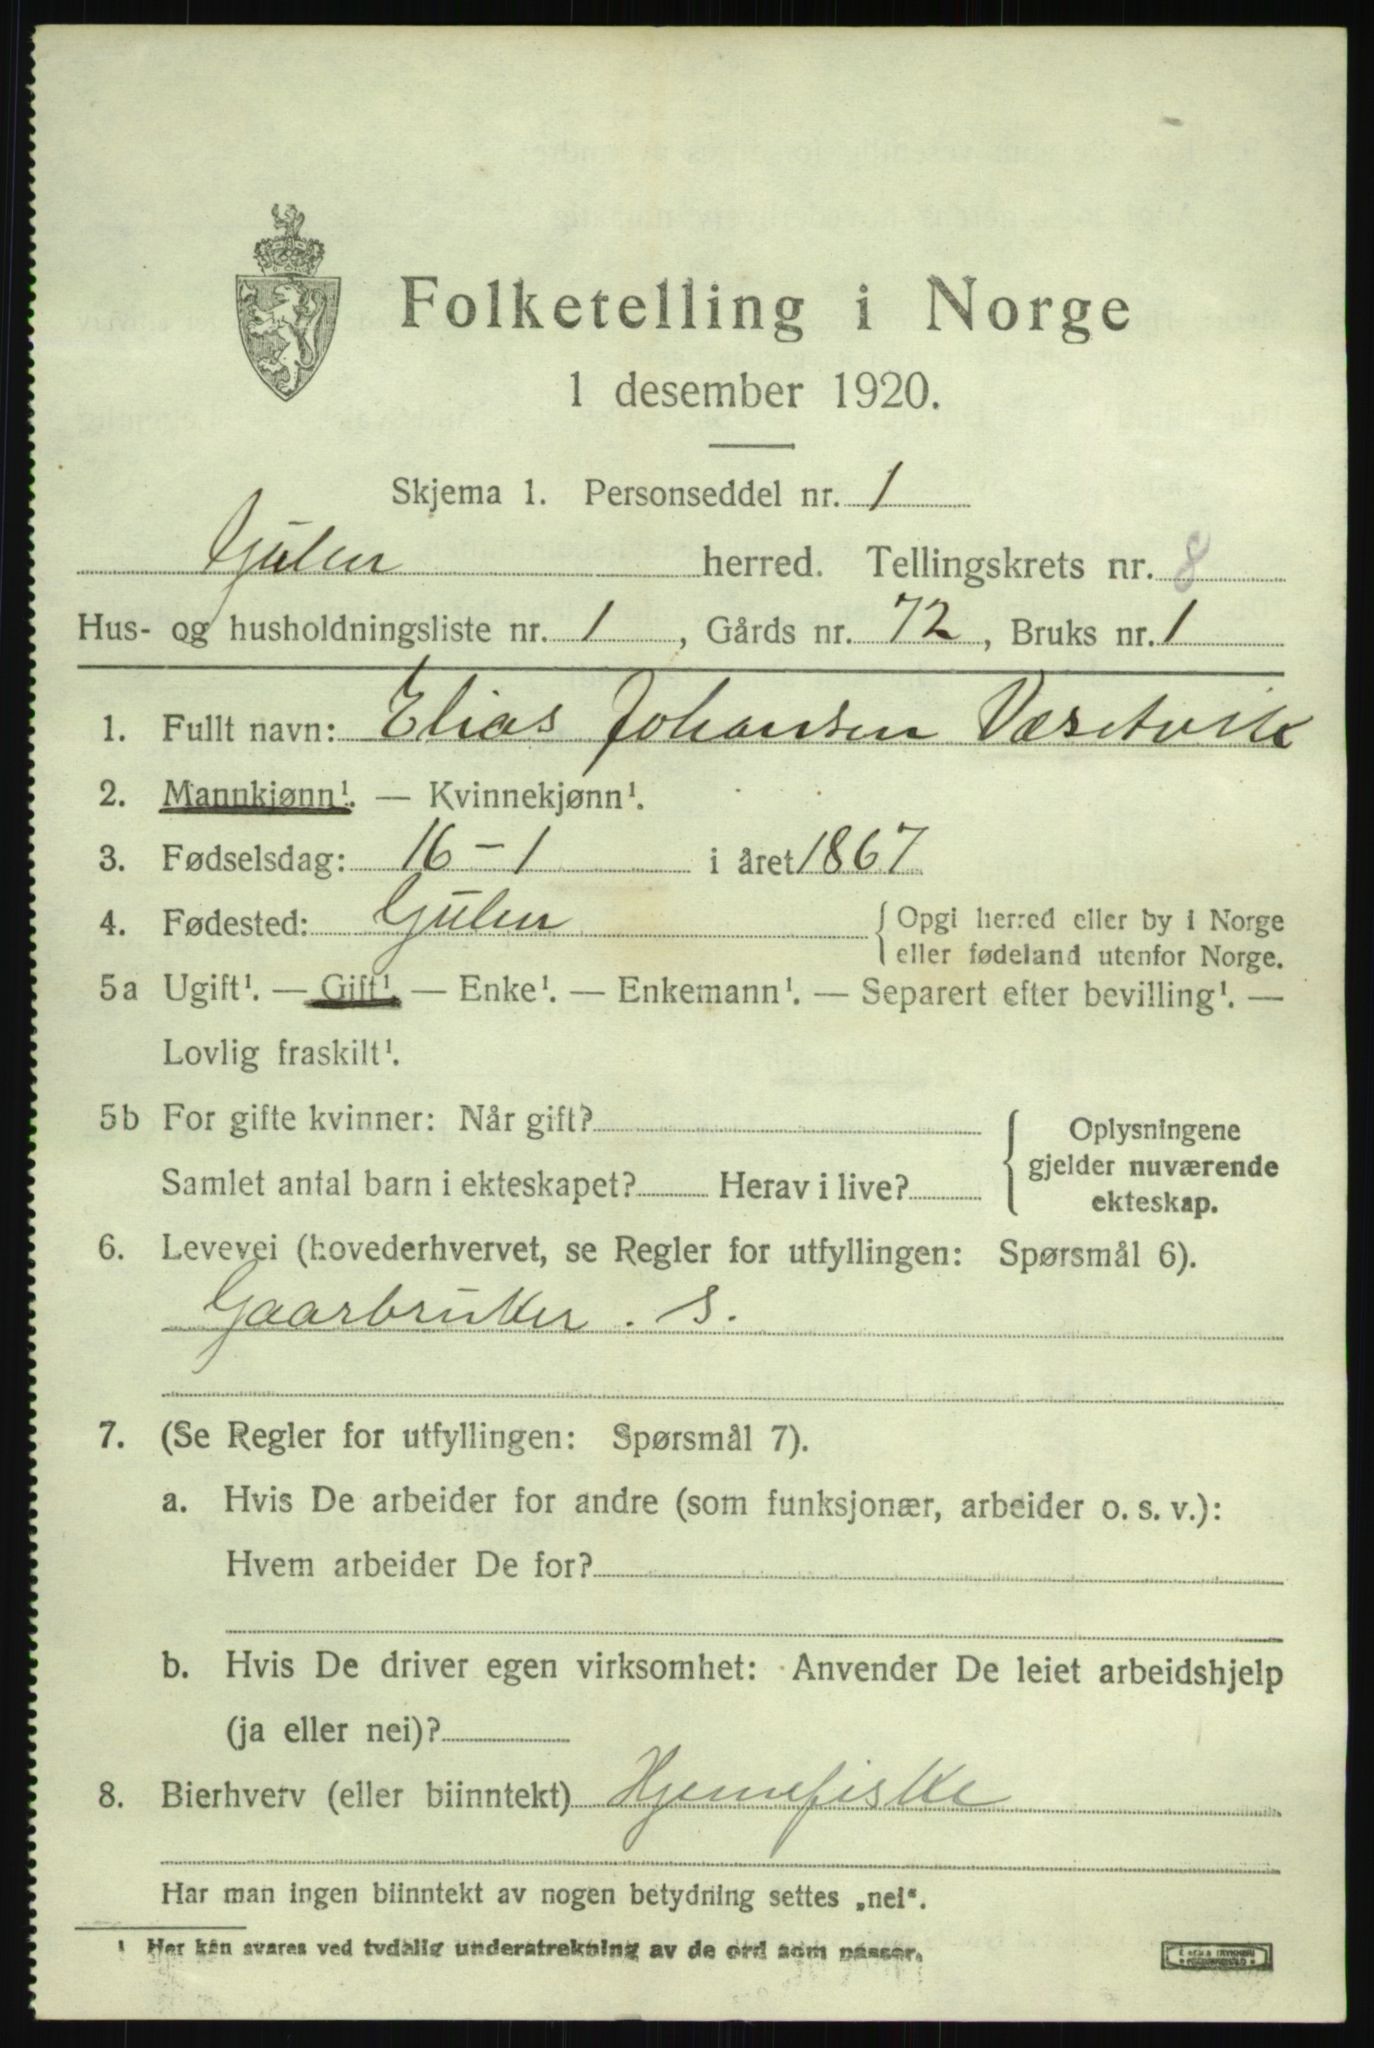 Folketelling i Norge
1 desember 1920.
Skjema 1. Personseddel nr. 1
Gulen herred. Tellingskrets nr. 8
Hus- og husholdningsliste nr. 1, Gårds nr. 72, Bruks nr. 1
1. Fullt navn: Elias Johansen Væretvik
2. Mannkjønn¹. — Kvinnekjønn¹.
3. Fødselsdag: 16-1 i året 1867
4. Fødested: Gulen { Opgi herred eller by i Norge
eller fødeland utenfor Norge.
5a Ugift¹. — Gift¹. — Enke¹. — Enkemann¹. — Separert efter bevilling¹. —
Lovlig fraskilt¹.
5b For gifte kvinner: Når gift?
Samlet antal barn i ekteskapet? Herav i live?
{ Oplysningene
gjelder nuværende
ekteskap.
6. Levevei (hovederhvervet, se Regler for utfyllingen: Spørsmål 6).
Gaarbruker. S.
7. (Se Regler for utfyllingen: Spørsmål 7).
a. Hvis De arbeider for andre (som funksjonær, arbeider o. s. v.):
Hvem arbeider De for?
b. Hvis De driver egen virksomhet: Anvender De leiet arbeidshjelp
(ja eller nei)?
8. Bierhverv (eller biinntekt) Hjemefiske
Har man ingen biinntekt av nogen betydning settes „nei“.
¹ Her kan svares ved tydelig understrekning av de ord som passer.